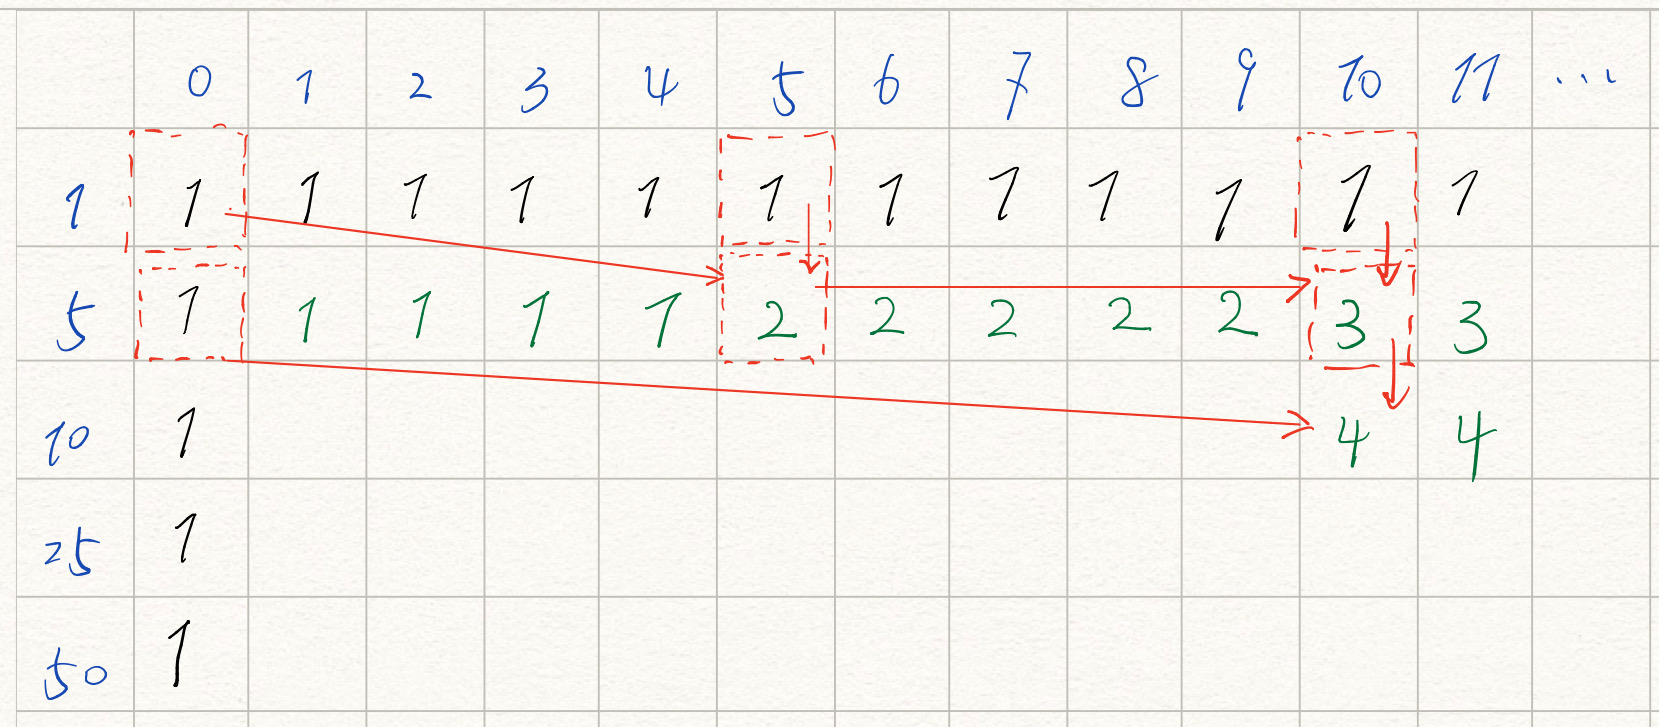 0 1 2 3 4 5 6 7 8 9 10 11 ...
1 1 1 1 1 1 1 1 1 1 1 1 1
5 1 1 1 1 1 2 2 2 2 2 3 3
10 1 4 4
25 1
50 1